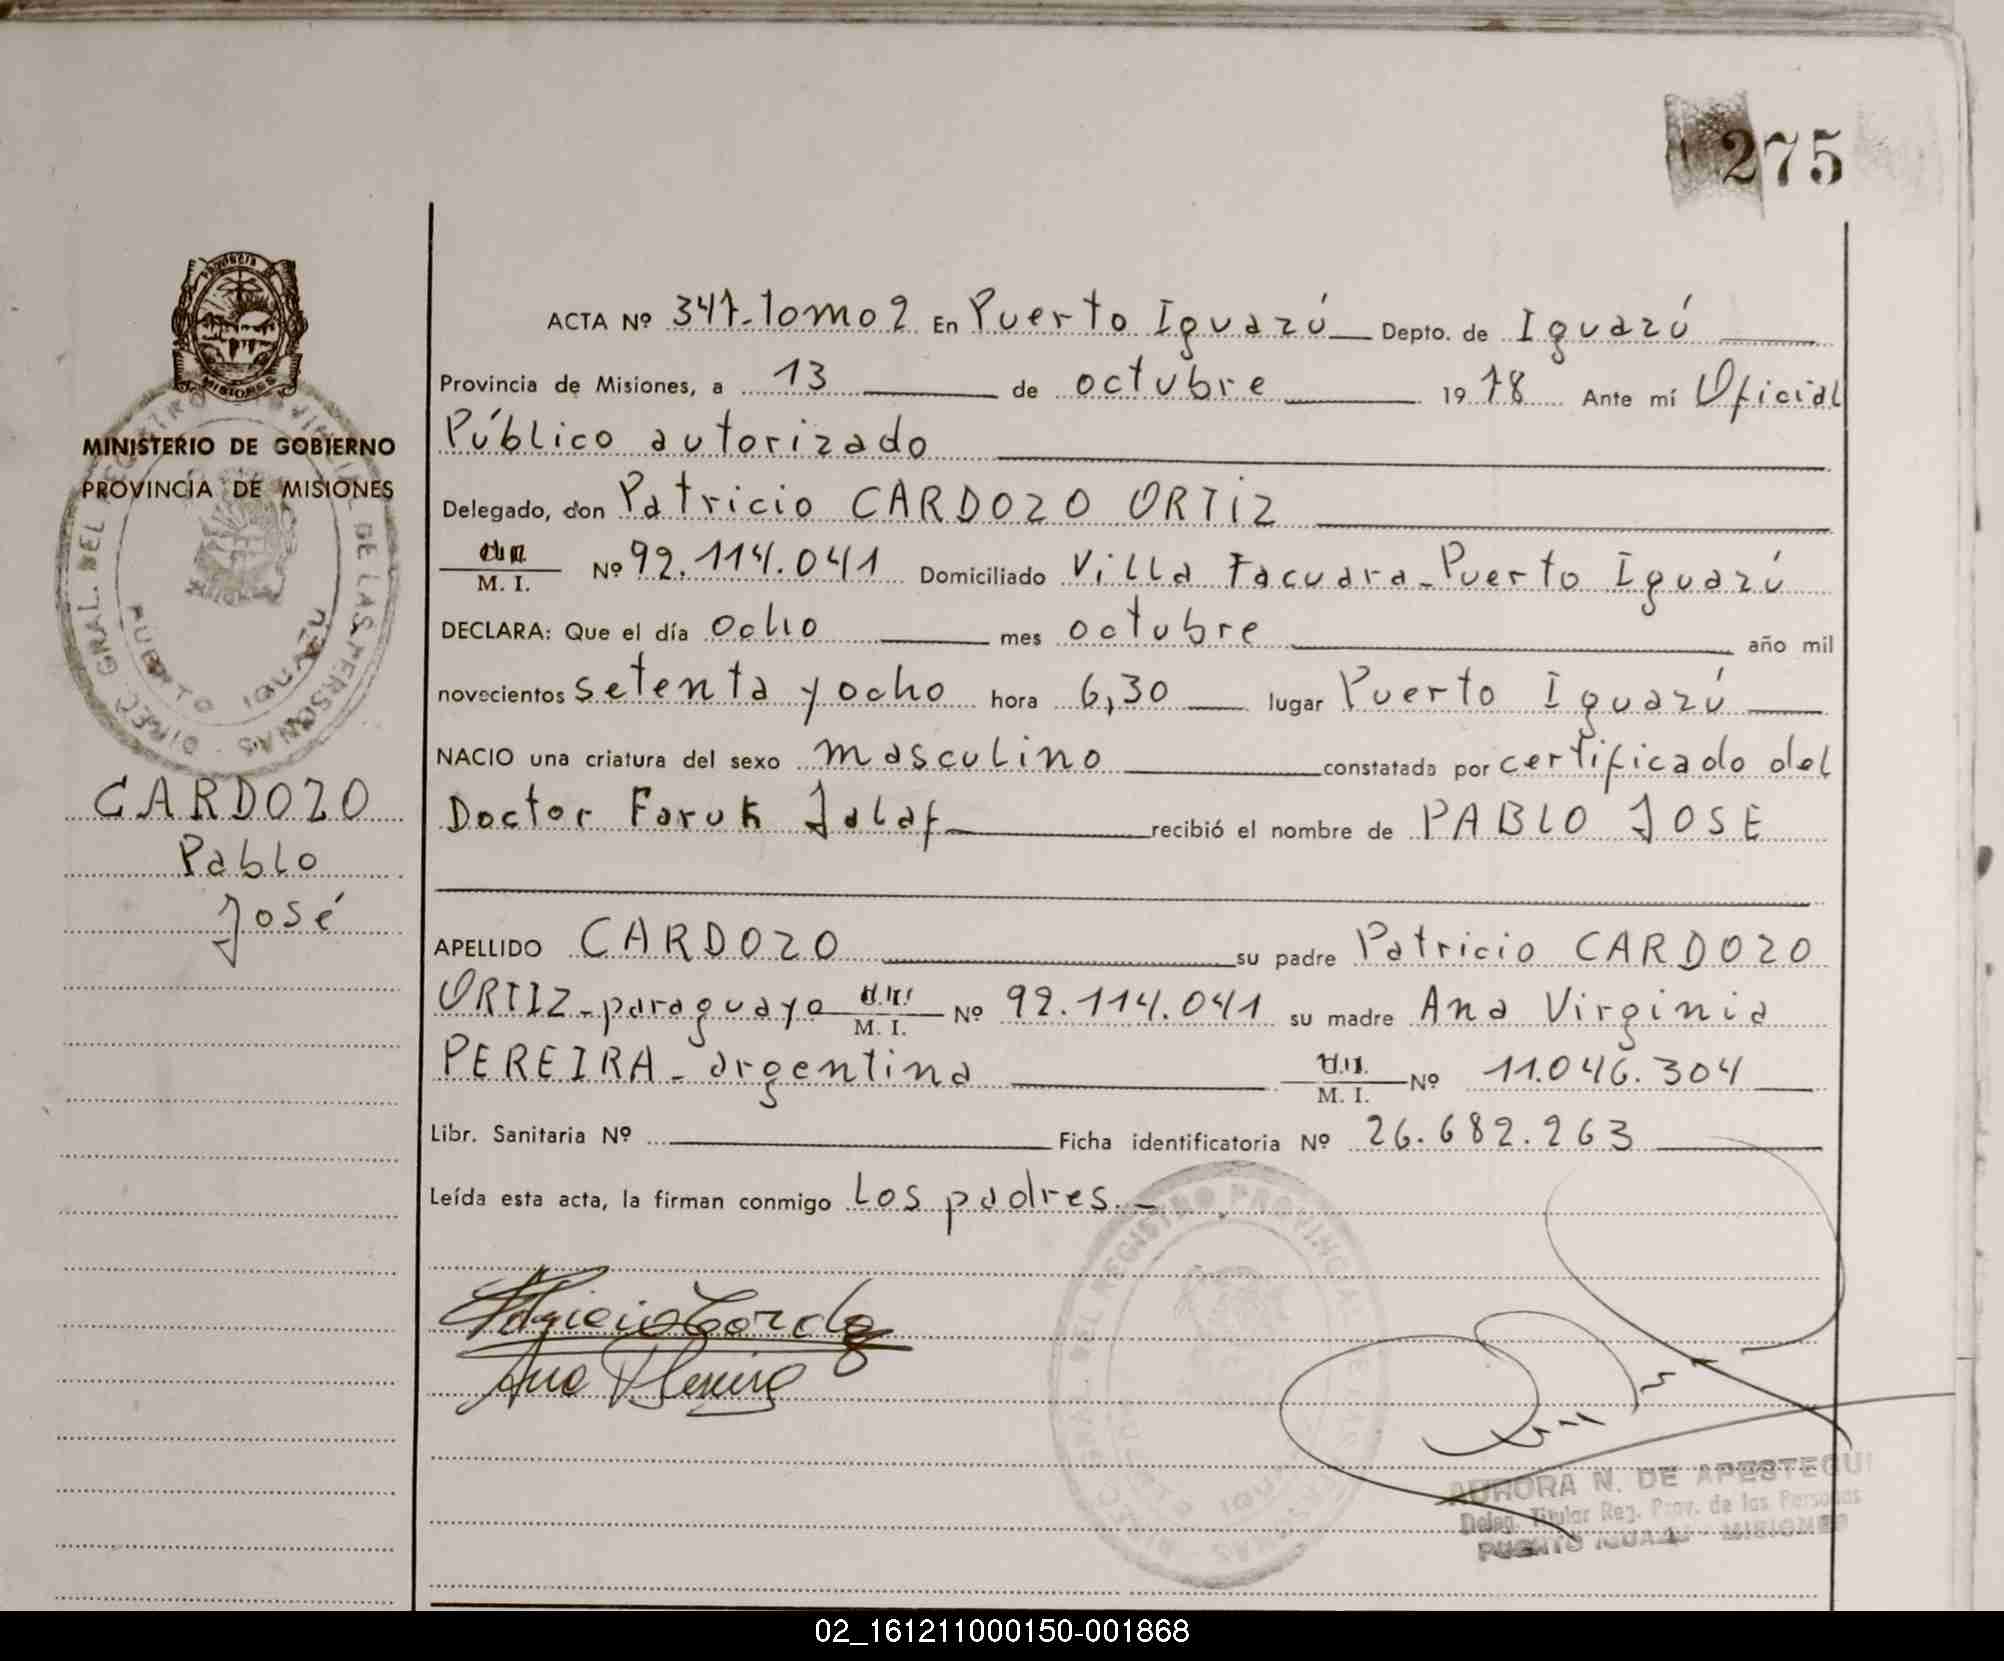 275
ACTA Nº 347-Tomo 2 En Puerto Iguazú Depto. de Iguazú
Provincia de Misiones, a 13 de octubre 1978 Ante mí Oficial
Público autorizado
Delegado, don Patricio CARDOZO ORTIZ
M. I. Nº 92.114.041 Domiciliado Villa Tacuara-Puerto Iguazú
DECLARA: Que el día ocho mes octubre año mil
novecientos setenta y ocho hora 6,30 lugar Puerto Iguazú
NACIO una criatura del sexo masculino constatada por certificado del
Doctor Faruk Jalaf recibió el nombre de PABLO JOSE
APELLIDO CARDOZO su padre Patricio CARDOZO
ORTIZ-paraguayo M. I. Nº 92.114.041 su madre Ana Virginia
PEREIRA-argentina M. I. Nº 11.046.304
Libr. Sanitaria Nº Ficha identificatoria Nº 26.682.263
Leída esta acta, la firman conmigo Los padres.-
PROVINCIA DE
MISIONES
MINISTERIO DE GOBIERNO
PROVINCIA DE MISIONES
DIREC. GRAL. DEL REGISTRO PROVINCIAL DE LAS PERSONAS
PUERTO IGUAZU
CARDOZO
Pablo
José
Patricio Cardozo
Ana V Pereira
DIREC. GRAL. DEL REGISTRO PROVINCIAL DE LAS PERSONAS
AURORA N. DE APESTEGUI
Deleg. Titular Reg. Prov. de las Personas
PUERTO IGUAZU - MISIONES
02_161211000150-001868